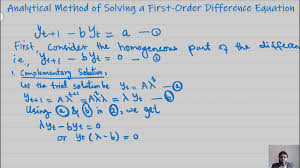 Analytical Method of Solving a First-Order Difference Equation
y_{t+1} - b y_t = a — ①
First, consider the homogeneous part of the differen
i.e., y_{t+1} - b y_t = 0 — ②
1. Complementary Solution:
Let the trial solution be y_t = Aλ^t — ⓐ
y_{t+1} = Aλ^{t+1} = Aλ^tλ = λy_t — ⓑ
Using ⓐ & ⓑ in ②, we get
λy_t - by_t = 0
or y_t(λ-b) = 0